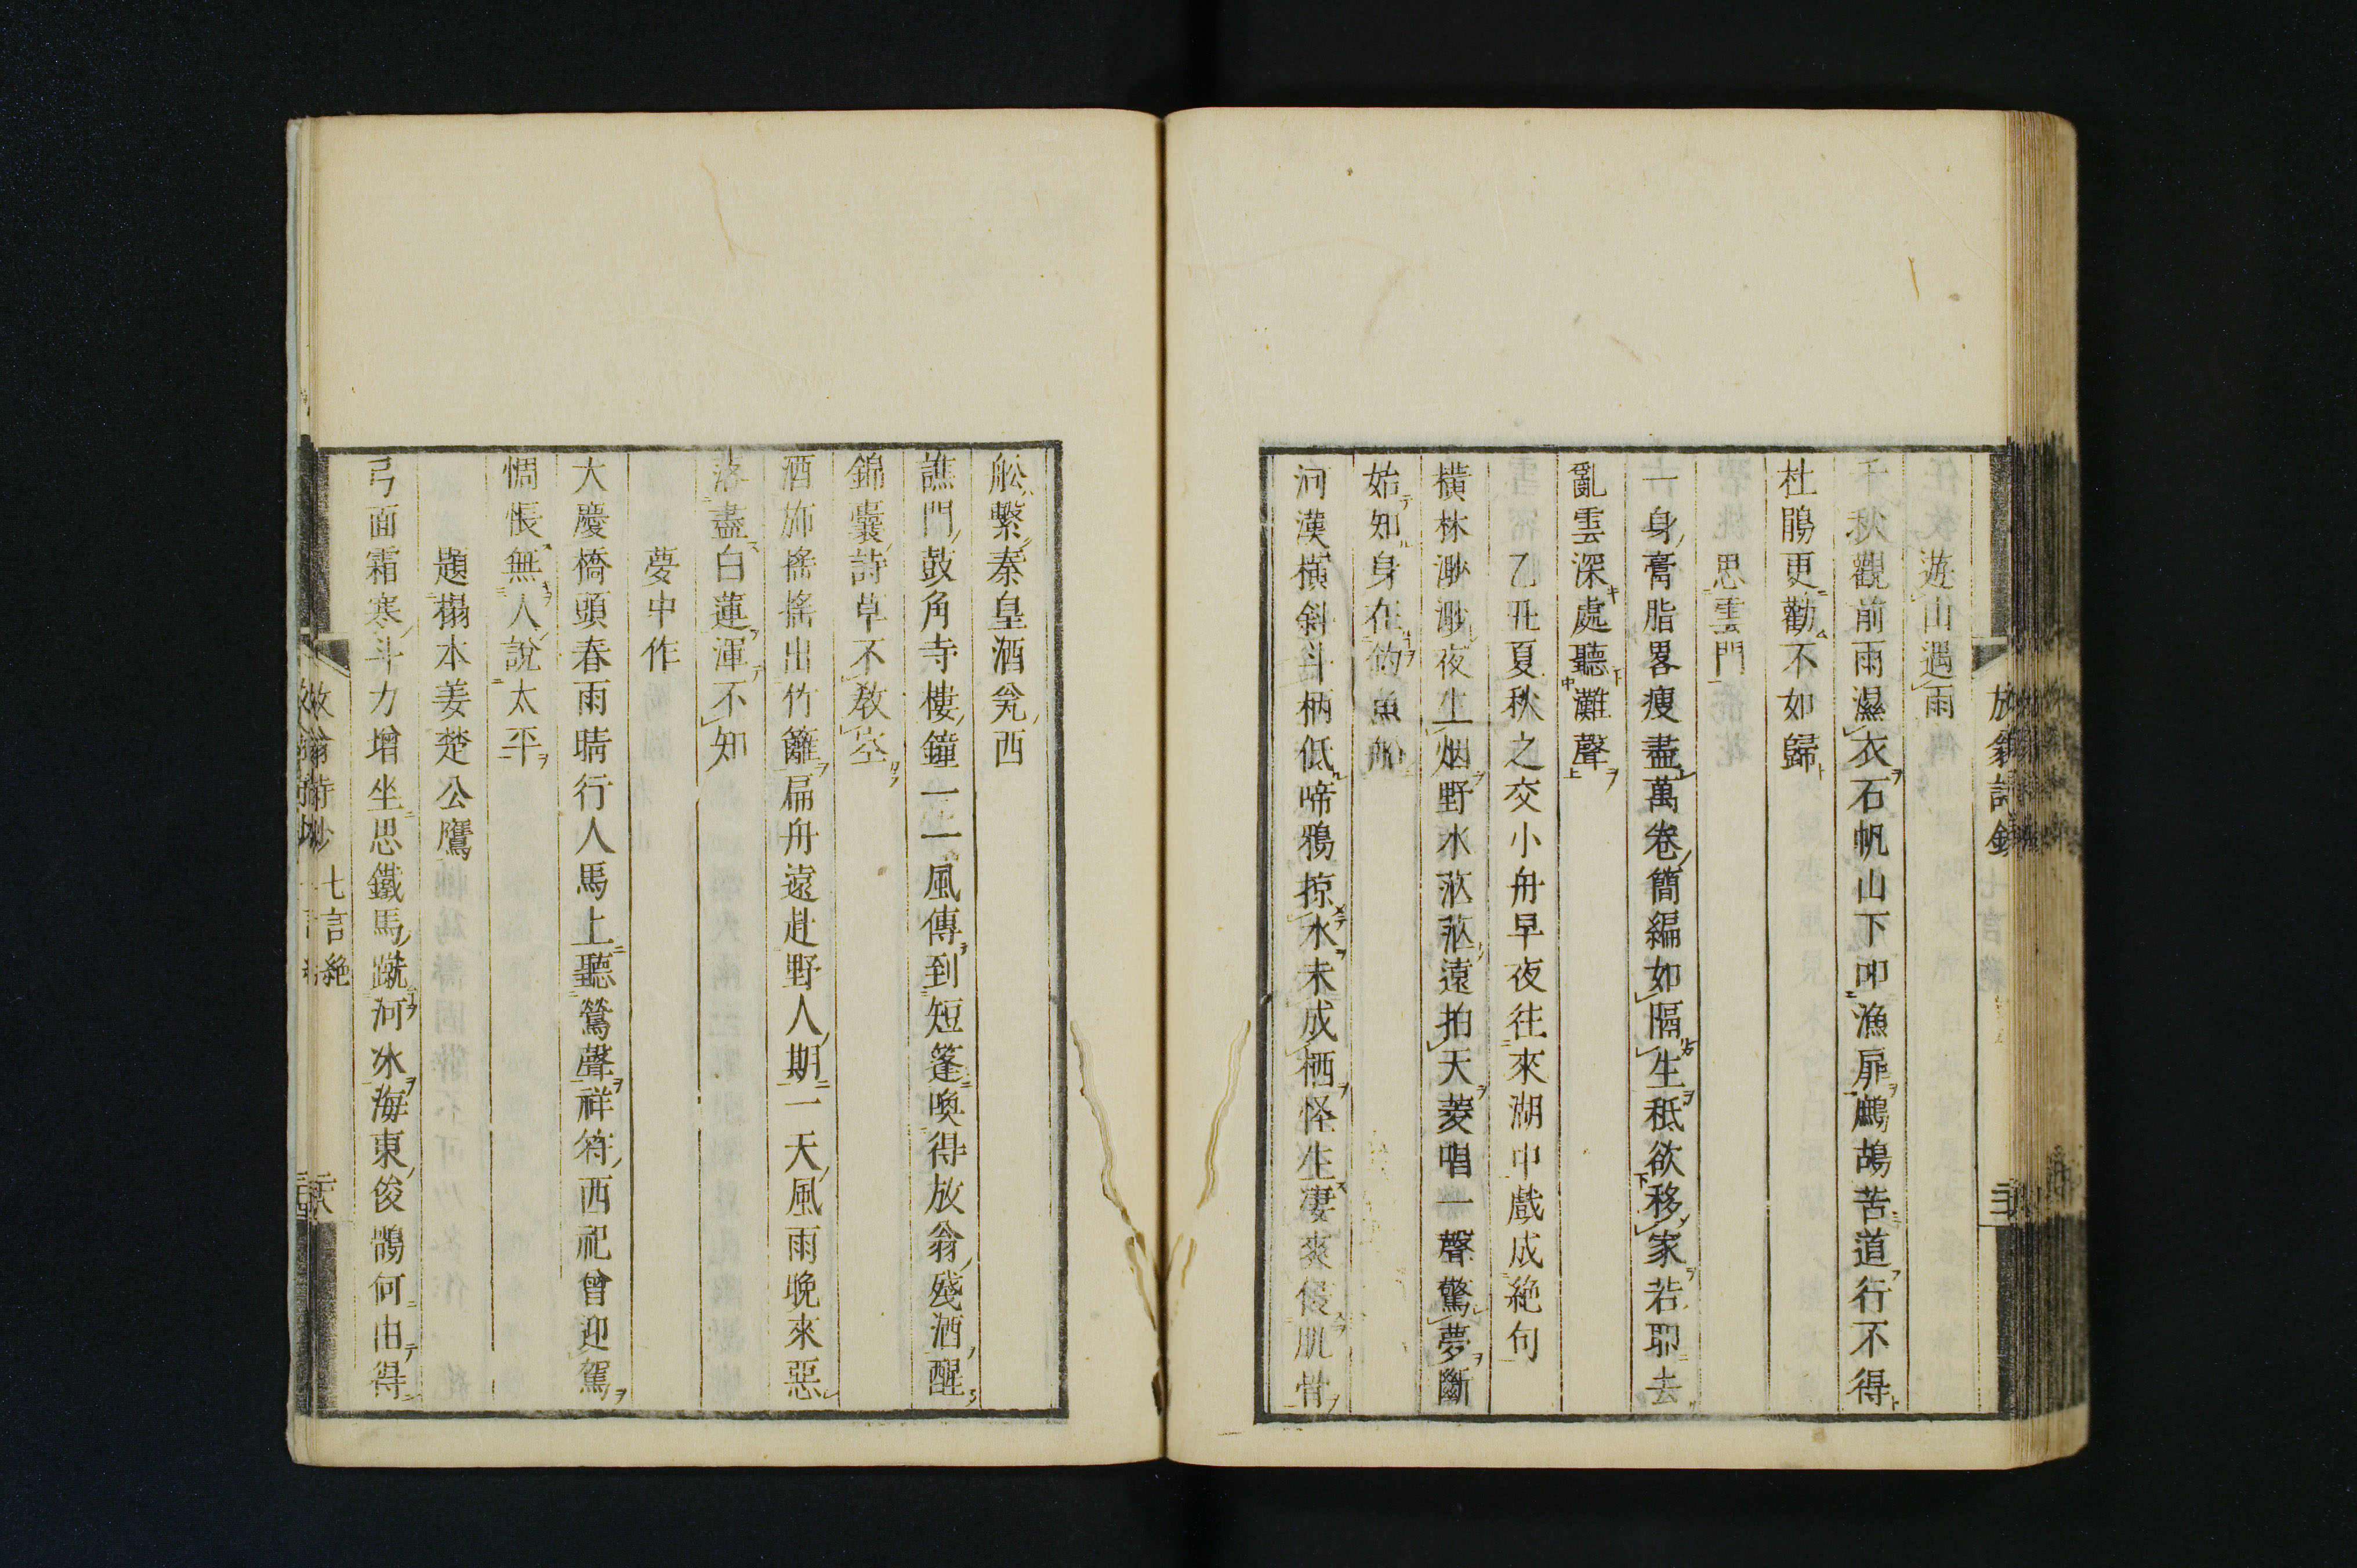 遊山遇雨
千秋觀前雨濕衣石帆山下叩漁扉鷓鴣苦道行不得
杜鵑更勸不如歸
思雲門
一身膏脂畧痩盡萬卷簡編如隔生秪欲移家若耶去
亂雲深處聽灘聲
乙丑夏秋之交小舟早夜往來湖中戲成絶句
橫林渺渺夜生烟野水茫茫遠拍天菱唱一聲驚夢斷
始知身在釣魚船
河漢橫斜斗柄低啼鴉掠水未成栖怪生凄爽侵肌骨
舩繫秦皇酒瓮西
譙門鼓角寺樓鐘一一風傳到短篷喚得放翁殘酒醒
錦囊詩草不敎空
酒斾搖搖出竹籬扁舟遠赴野人期一天風雨晚來惡
落盡白蓮渾不知
夢中作
大慶橋頭春雨晴行人馬上聽鶯聲祥符西祀曾迎駕
惆悵無人說太平
題榻本姜楚公鷹
弓面霜寒斗力增坐思鐵馬蹴河冰海東俊鶻何由得
放翁詩鈔 七言絶